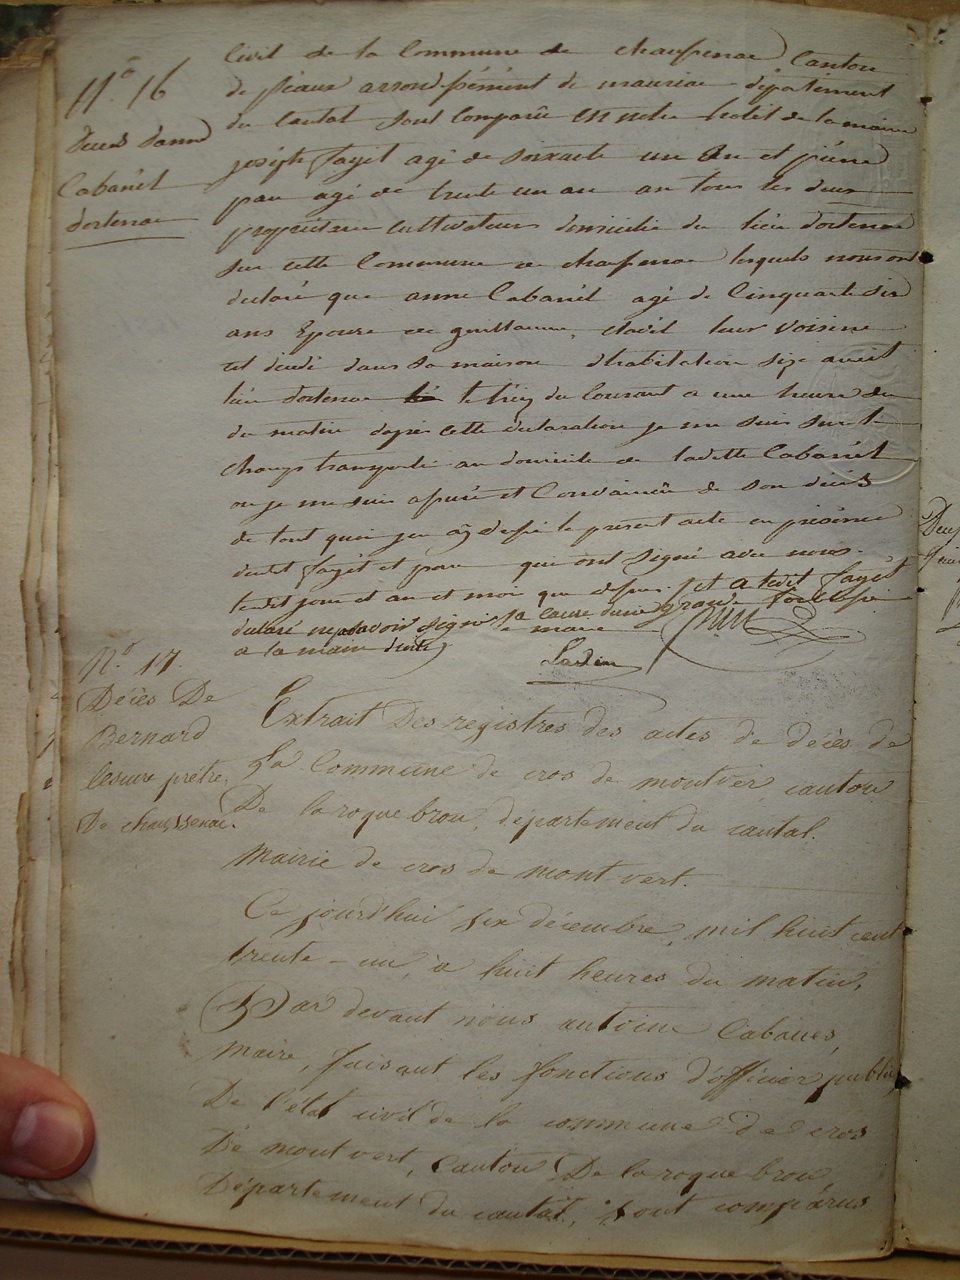 N° 16
deces danne
Cabanél
dostenac
Civil de la Commune de chaussenac Canton
de pleaux arrondissement de mauriac département
du Cantal sont Comparûs en notre hotel de la mairie
joseph fayet agé de soixante un an et pierre
pau agé de trente un an an tous les deux
propriétaire Cultivateurs domicilie du lieu dostenac
sur cette Commune de chaussenac lesquels nous ont
declaré que anne Cabanél agé de Cinquante six
ans Epouse de guillaume clavil leur voisine
est decdé dans sa maison dhabitation size audit
lieu dostenac le treize du Courant a une heure du
du matin dapres cette declaration je me suis sur le
champs transporté au domicile de ladette Cabanél
ou je me suis assuré et Convaincû de son décés
de tout quoi jen ay dressé le present acte en présence
dudit fayet et pau qui ont signé avec nous
ledit jour et an et mois que dessus et a ledit fayet
declaré ne savoir signer a cause dune grande
a la main droite
maire
N° 17
Décès De
Bernard
lescure prétre,
De chaussenac.
Extrait Des registres des actes de décès de
La Commune de cros de montvér, canton
De la roquebrou, département du cantal.
Mairie de cros de mont vert.
Ce jourd'hui six décembre, mil huit cent
trente - un, a huit heures du matin,
Par devant nous antoine Cabanes,
maire, faisant les fonctions d'officier public
De l'état civil de la commune de cros
De mont vert, Canton De la roquebrou
Département du cantal, sont comparus